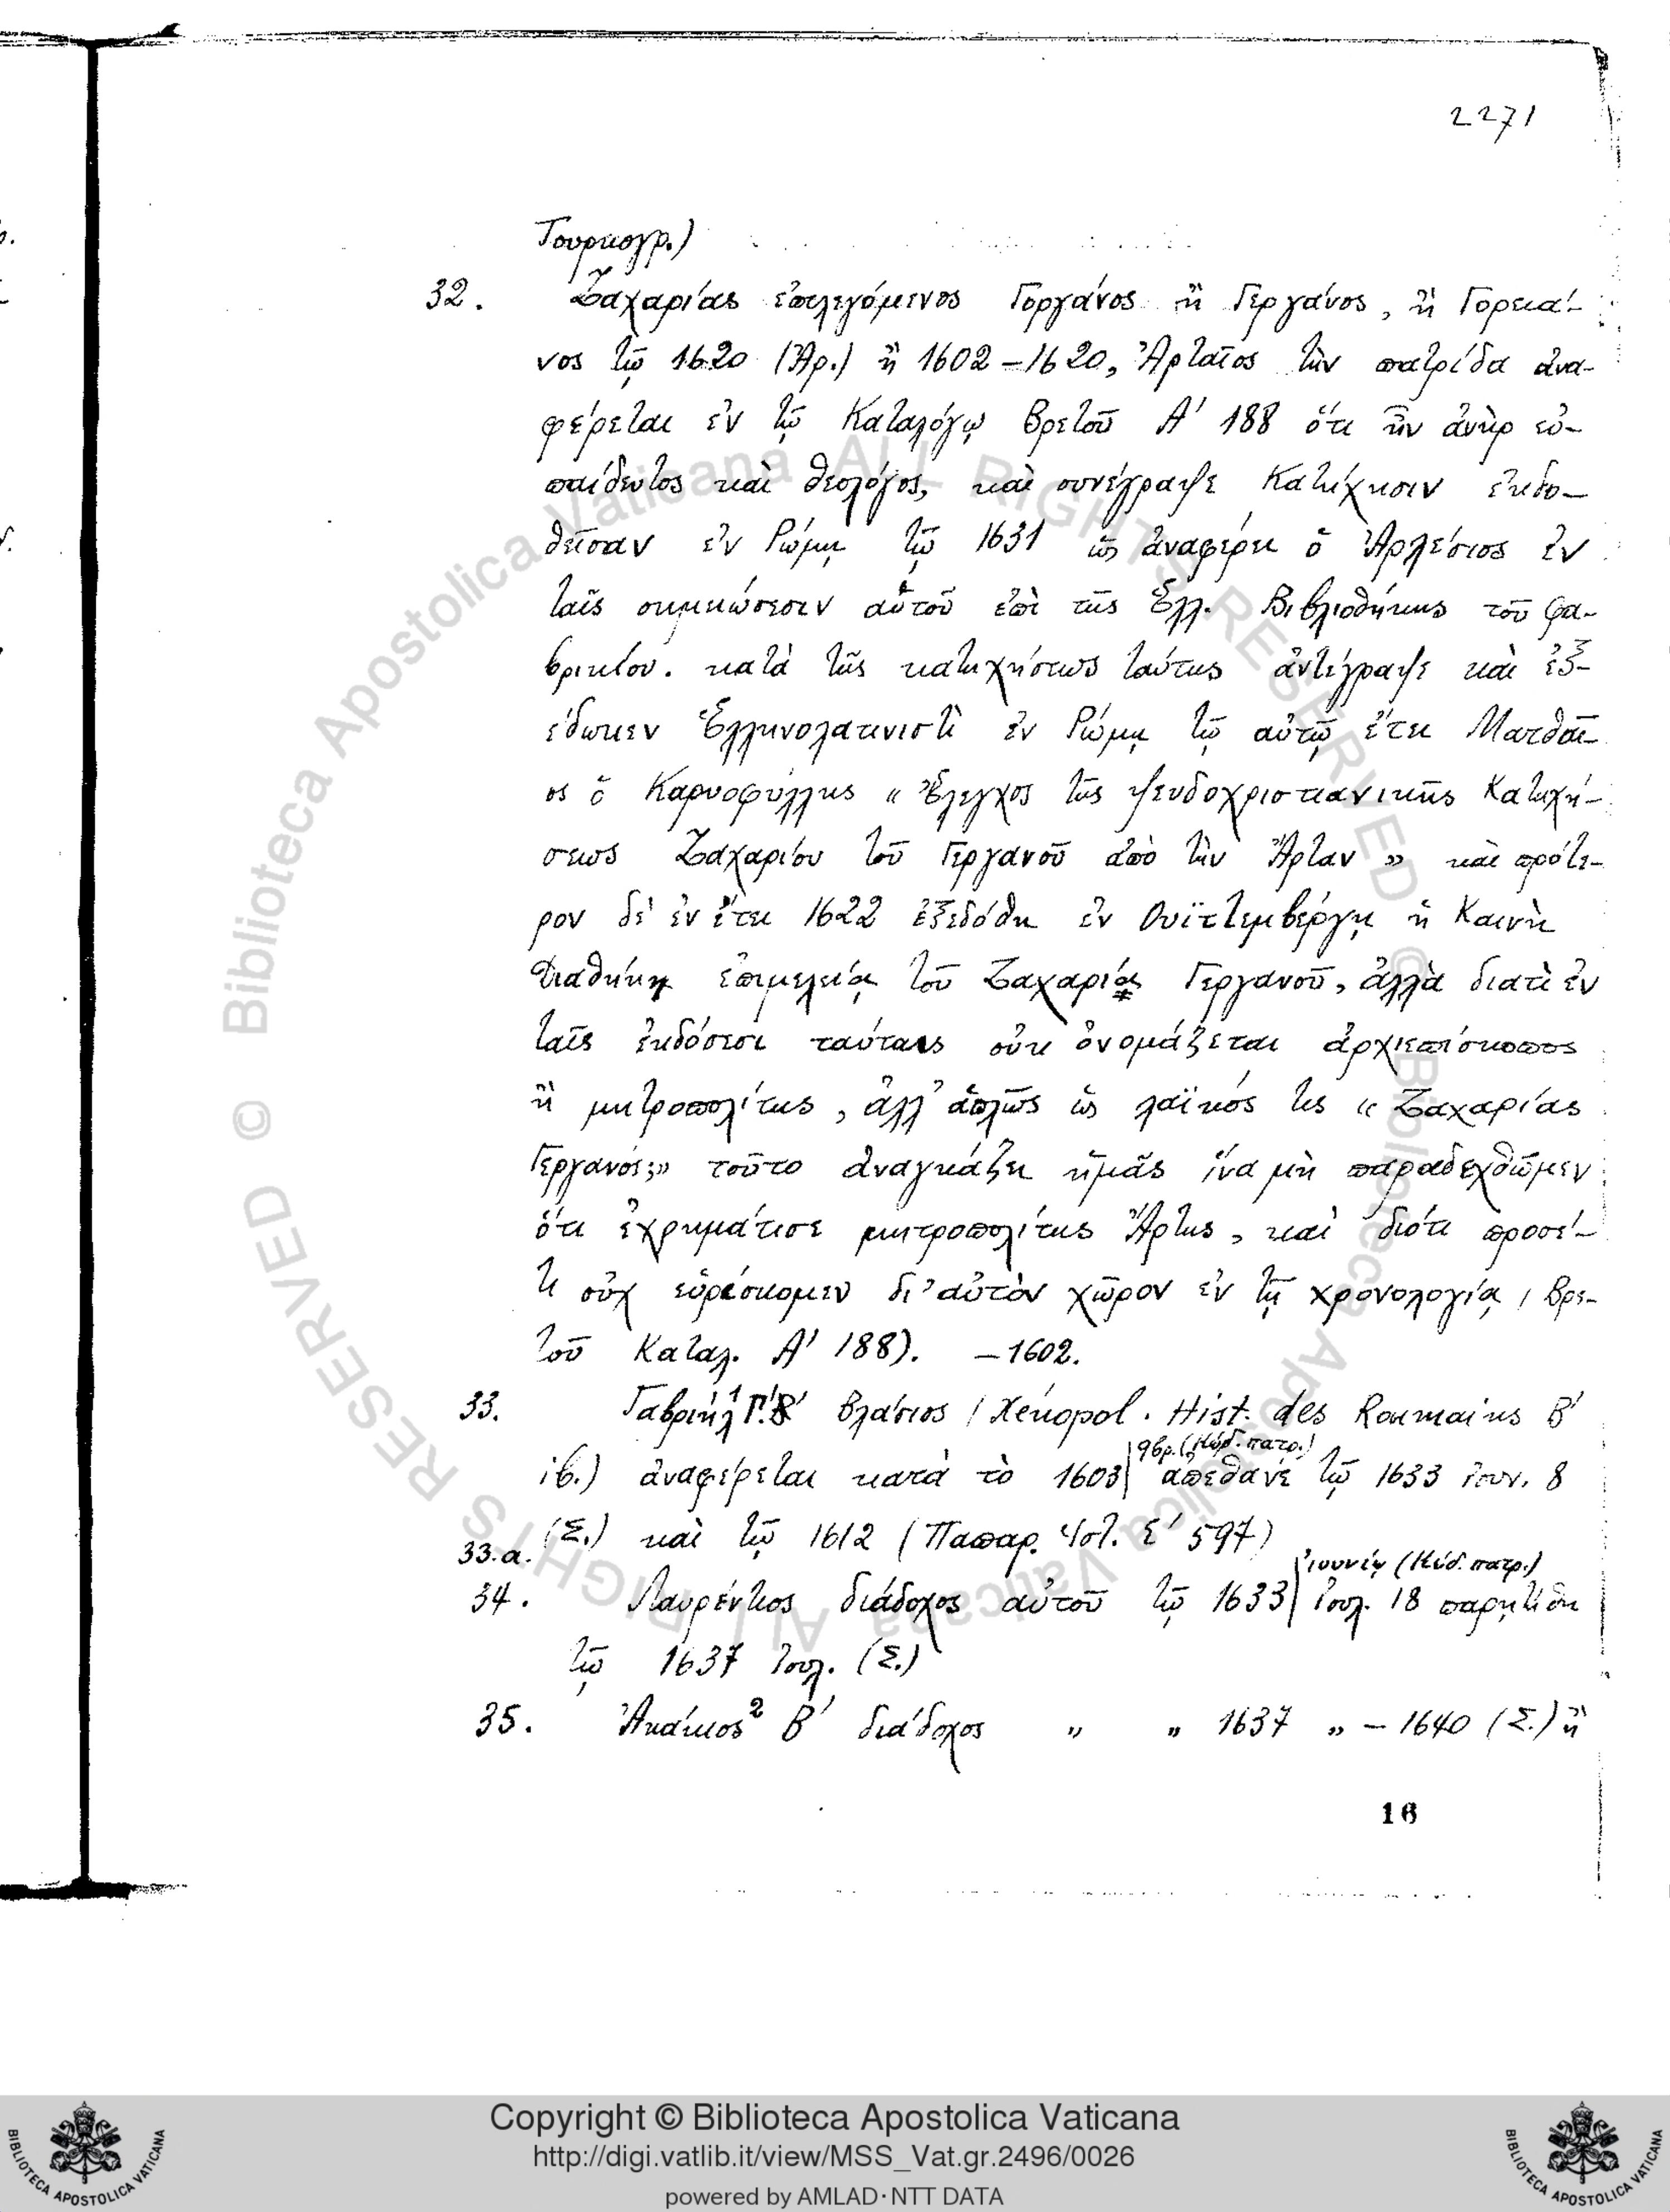 2271
Τουρκογρ.)
32. Ζαχαρίας ἐπιλεγόμενος Γοργάνος ἢ Γεργάνος, ἢ Γορκά-
νος τῷ 1620 (Ἀρ.) ἢ 1602-1620, Ἀρταῖος τὴν πατρίδα ἀνα-
φέρεται ἐν τῷ Καταλόγῳ Βρετοῦ Α' 188 ὅτι ἦν ἀνὴρ εὐ-
παίδευτος καὶ θεολόγος, καὶ συνέγραψε Κατήχησιν ἐκδο-
θεῖσαν ἐν Ρώμῃ τῷ 1631 ὡς ἀναφέρει ὁ Ἀρλέσιος ἐν
ταῖς σημειώσεσιν αὑτοῦ ἐπὶ τῆς Ἑλλ. Βιβλιοθήκης τοῦ Φα-
βρικίου. κατὰ τῆς κατηχήσεως ταύτης ἀντέγραψε καὶ ἐξ-
έδωκεν Ἑλληνολατινιστὶ ἐν Ρώμῃ τῷ αὐτῷ ἔτει Ματθαῖ-
ος ὁ Καρυοφύλλης « Ἔλεγχος τῆς ψευδοχριστιανικῆς Κατηχή-
σεως Ζαχαρίου τοῦ Γεργανοῦ ἀπὸ τὴν Ἄρταν » καὶ πρότε-
ρον δὲ ἐν ἔτει 1622 ἐξεδόθη ἐν Οὐϊττεμβέργῃ ἡ Καινὴ
Διαθήκη ἐπιμελείᾳ τοῦ Ζαχαρίᾳ Γεργανοῦ, ἀλλὰ διατὶ ἐν
ταῖς ἐκδόσεσι ταύταις οὐκ ὀνομάζεται ἀρχιεπίσκοπος
ἢ μητροπολίτης, ἀλλ' ἁπλῶς ὡς λαϊκός τις « Ζαχαρίας
Γεργανός;» τοῦτο ἀναγκάζει ἡμᾶς ἵνα μὴ παραδεχθῶμεν
ὅτι ἐχρημάτισε μητροπολίτης Ἄρτης, καὶ διότι προσέ-
τι οὐχ εὑρίσκομεν δι' αὐτὸν χῶρον ἐν τῇ χρονολογίᾳ (Βρε-
τοῦ Καταλ. Α' 188). -1602.
33. Γαβριὴλ¹ Γ'. Βλάσιος (Xénopol. Hist. des Roumains Β'
9βρ. (Κώδ. πατρ.)
ιβ.) ἀναφέρεται κατὰ τὸ 1603| ἀπέθανε τῷ 1633 Ἰουν. 8
(Σ.) καὶ τῷ 1612 (Παπαρ. Ἱστ. Ε' 597)
33.α.
Ἰουνίῳ (Κώδ. πατρ.)
34. Λαυρέντιος διάδοχος αὐτοῦ τῷ 1633| Ἰουλ. 18 παρῃτήθη
τῷ 1637 Ἰουλ. (Σ.)
35. Ἀκάκιος² Β' διάδοχος „ „ 1637 „ - 1640 (Σ.) ἢ
16
© Biblioteca Apostolica Vaticana ALL RIGHTS RESERVED
Copyright © Biblioteca Apostolica Vaticana
http://digi.vatlib.it/view/MSS_Vat.gr.2496/0026
powered by AMLAD·NTT DATA
BIBLIOTECA APOSTOLICA VATICANA
BIBLIOTECA APOSTOLICA VATICANA